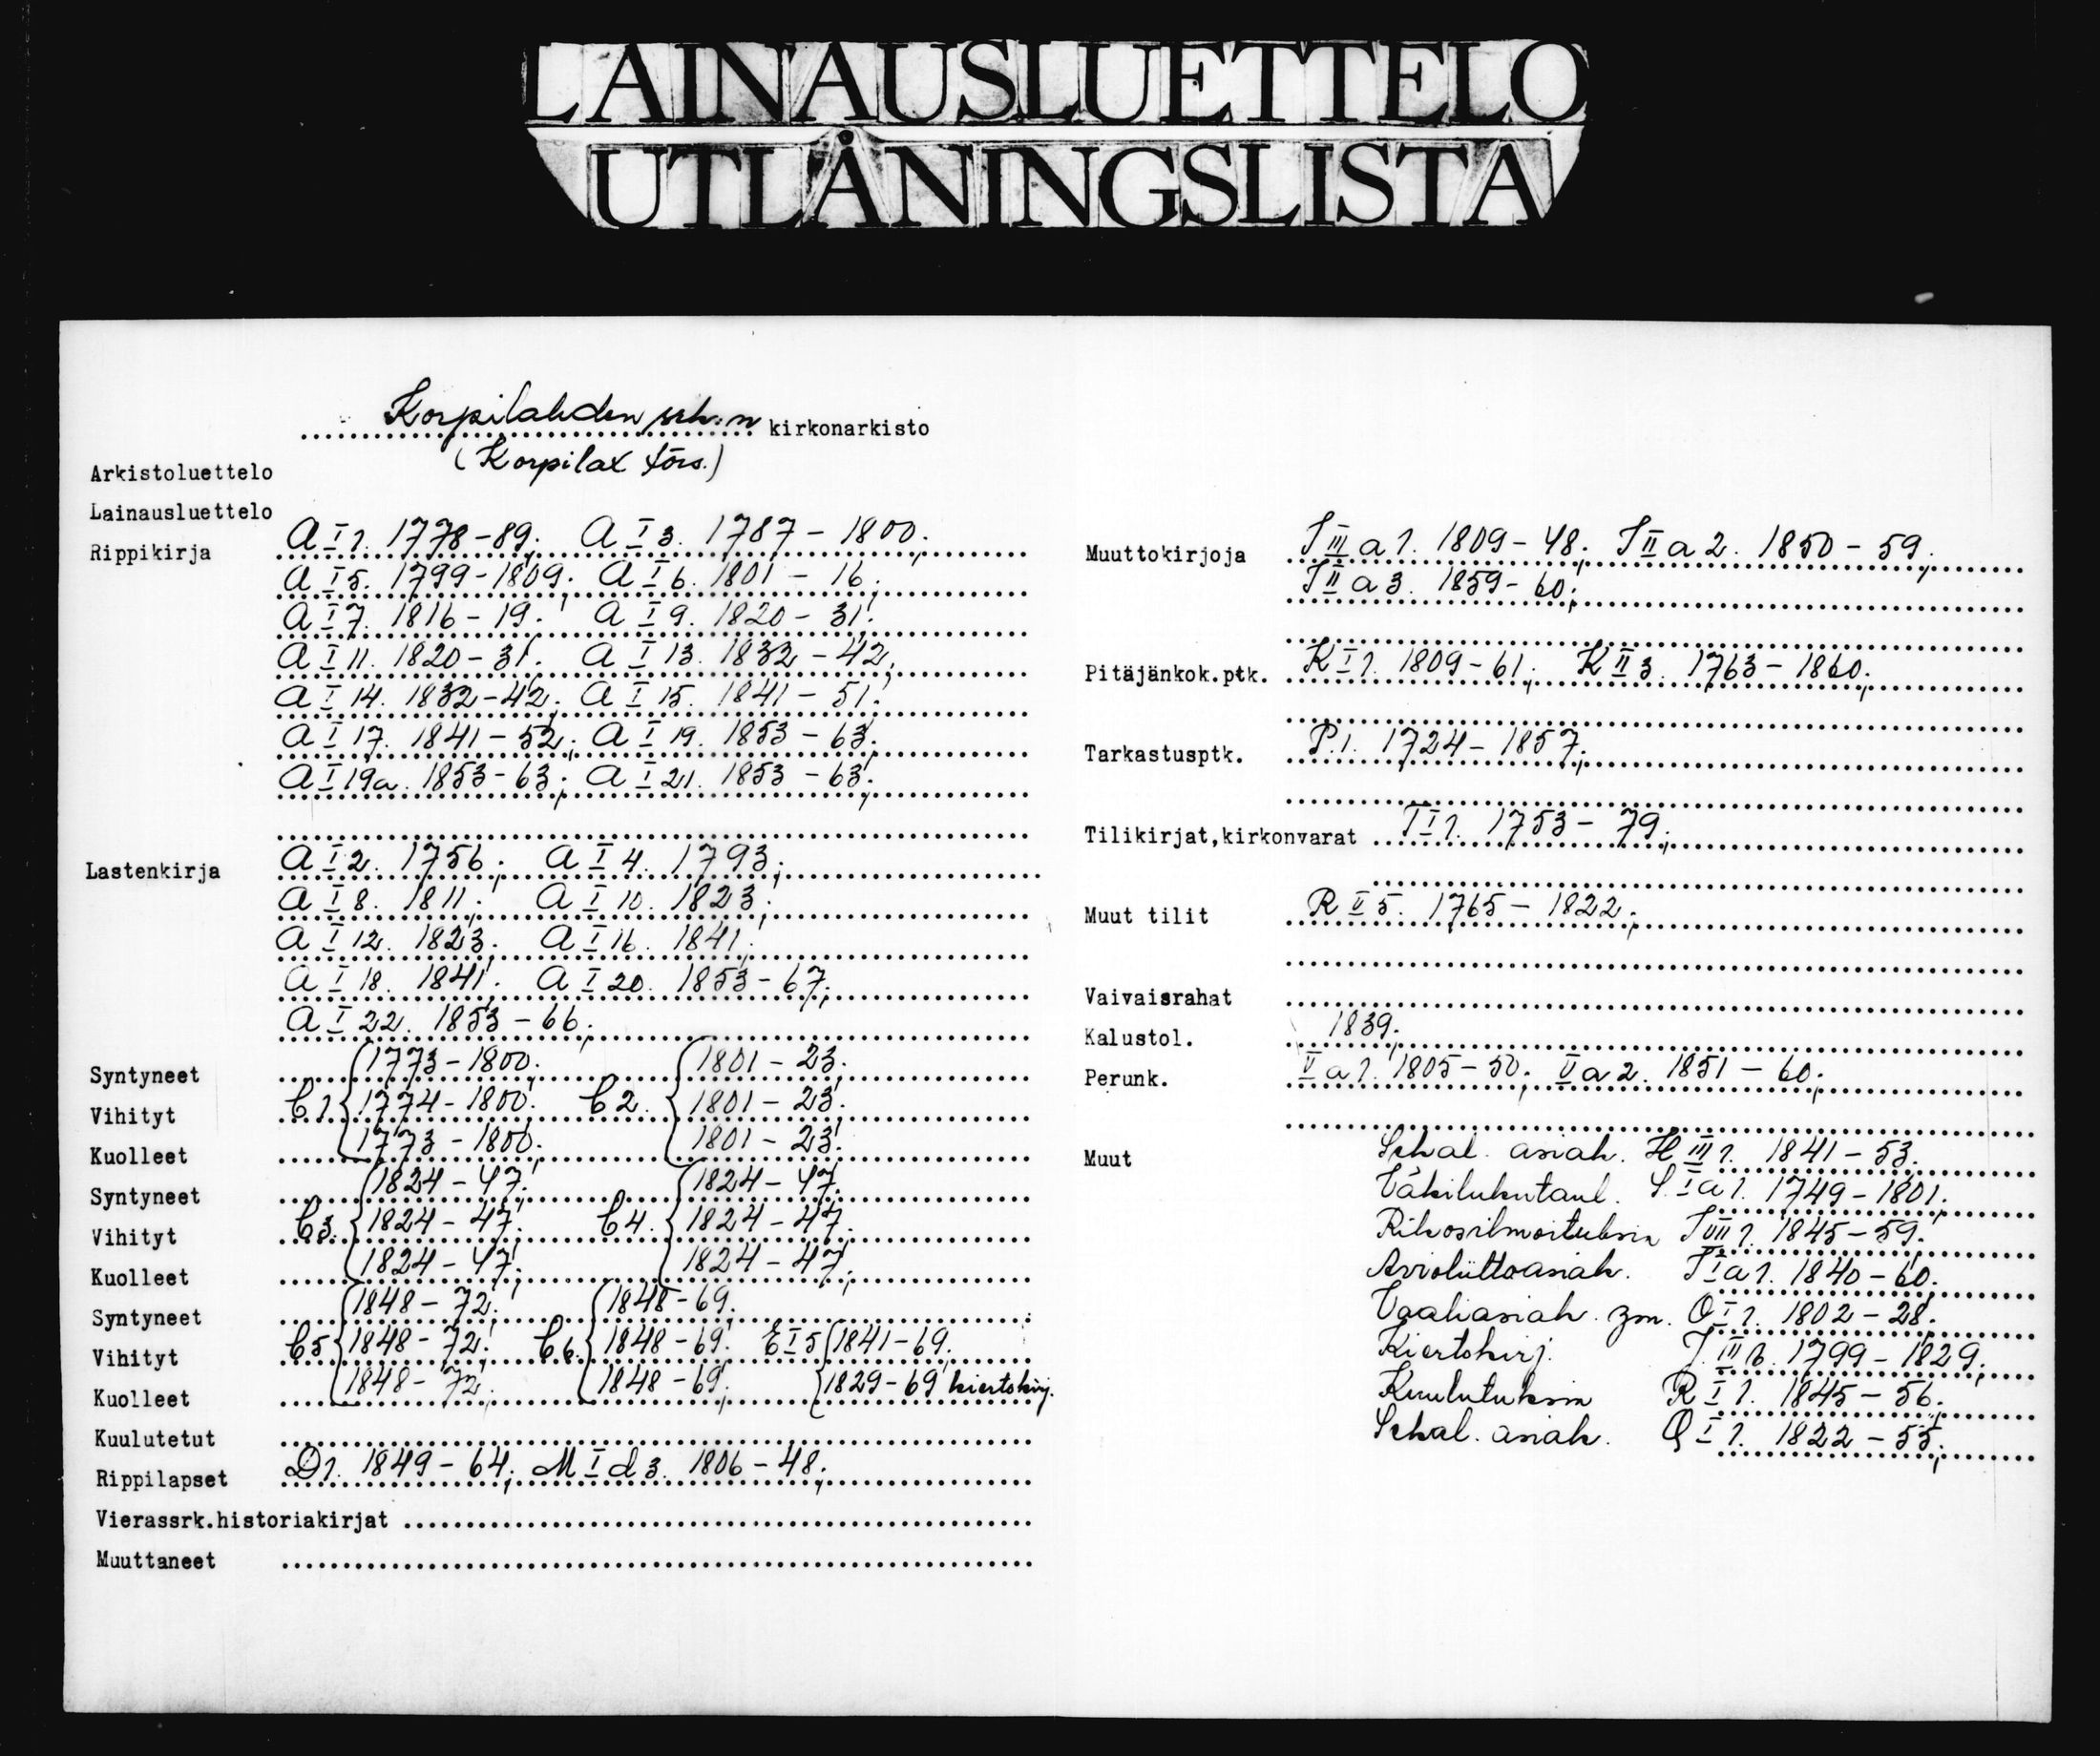 LAINAUSLUETTELO
UTLÅNINGSLISTA
Korpilahden srk:n kirkonarkisto
(Korpilax förs.)
Arkistoluettelo
Lainausluettelo
Rippikirja A I 1. 1778-89; A I 3. 1787-1800;
A I 5. 1799-1809; A I 6. 1801-16;
A I 7. 1816-19; A I 9. 1820-31;
A I 11. 1820-31; A I 13. 1832-42;
A I 14. 1832-42; A I 15. 1841-51;
A I 17. 1841-52; A I 19. 1853-63;
A I 19a. 1853-63; A I 21. 1853-63;
Lastenkirja A I 2. 1756; A I 4. 1793;
A I 8. 1811; A I 10. 1823;
A I 12. 1823; A I 16. 1841;
A I 18. 1841; A I 20. 1853-67;
A I 22. 1853-66;
Syntyneet 1773-1800; 1801-23;
Vihityt C 1. 1774-1800; C 2. 1801-23;
Kuolleet 1773-1800; 1801-23;
Syntyneet 1824-47; 1824-47;
Vihityt C 3. 1824-47; C 4. 1824-47;
Kuolleet 1824-47; 1824-47;
Syntyneet 1848-72; 1848-69;
Vihityt C 5 1848-72; C 6. 1848-69; E I 5 1841-69;
Kuolleet 1848-72; 1848-69; 1829-69 kiertokirj.
Kuulutetut
Rippilapset D 1. 1849-64; M I d 3. 1806-48;
Vierassrk.historiakirjat
Muuttaneet
Muuttokirjoja a 1. 1809-48; II a 2. 1850-59;
II a 3. 1859-60;
Pitäjänkok.ptk. K I 1. 1809-61; K II 3. 1763-1860;
Tarkastusptk. P. 1. 1724-1857;
Tilikirjat,kirkonvarat I 1. 1753-79;
Muut tilit R II 5. 1765-1822;
Vaivaisrahat
Kalustol. 1839;
Perunk. V a 1. 1805-50; V a 2. 1851-60;
Muut Sekal. asiak. H III 1. 1841-53;
Väkilukutaul. I a 1. 1749-1801;
Rikosilmoituksia 1845-59;
Avioliittoasiak. I a 1. 1840-60;
Vaaliasiak. ym. O I 1. 1802-28;
Kiertokirj. 1799-1829;
Kuulutuksia R I 1. 1845-56;
Sekal. asiak. Q I 1. 1822-55;